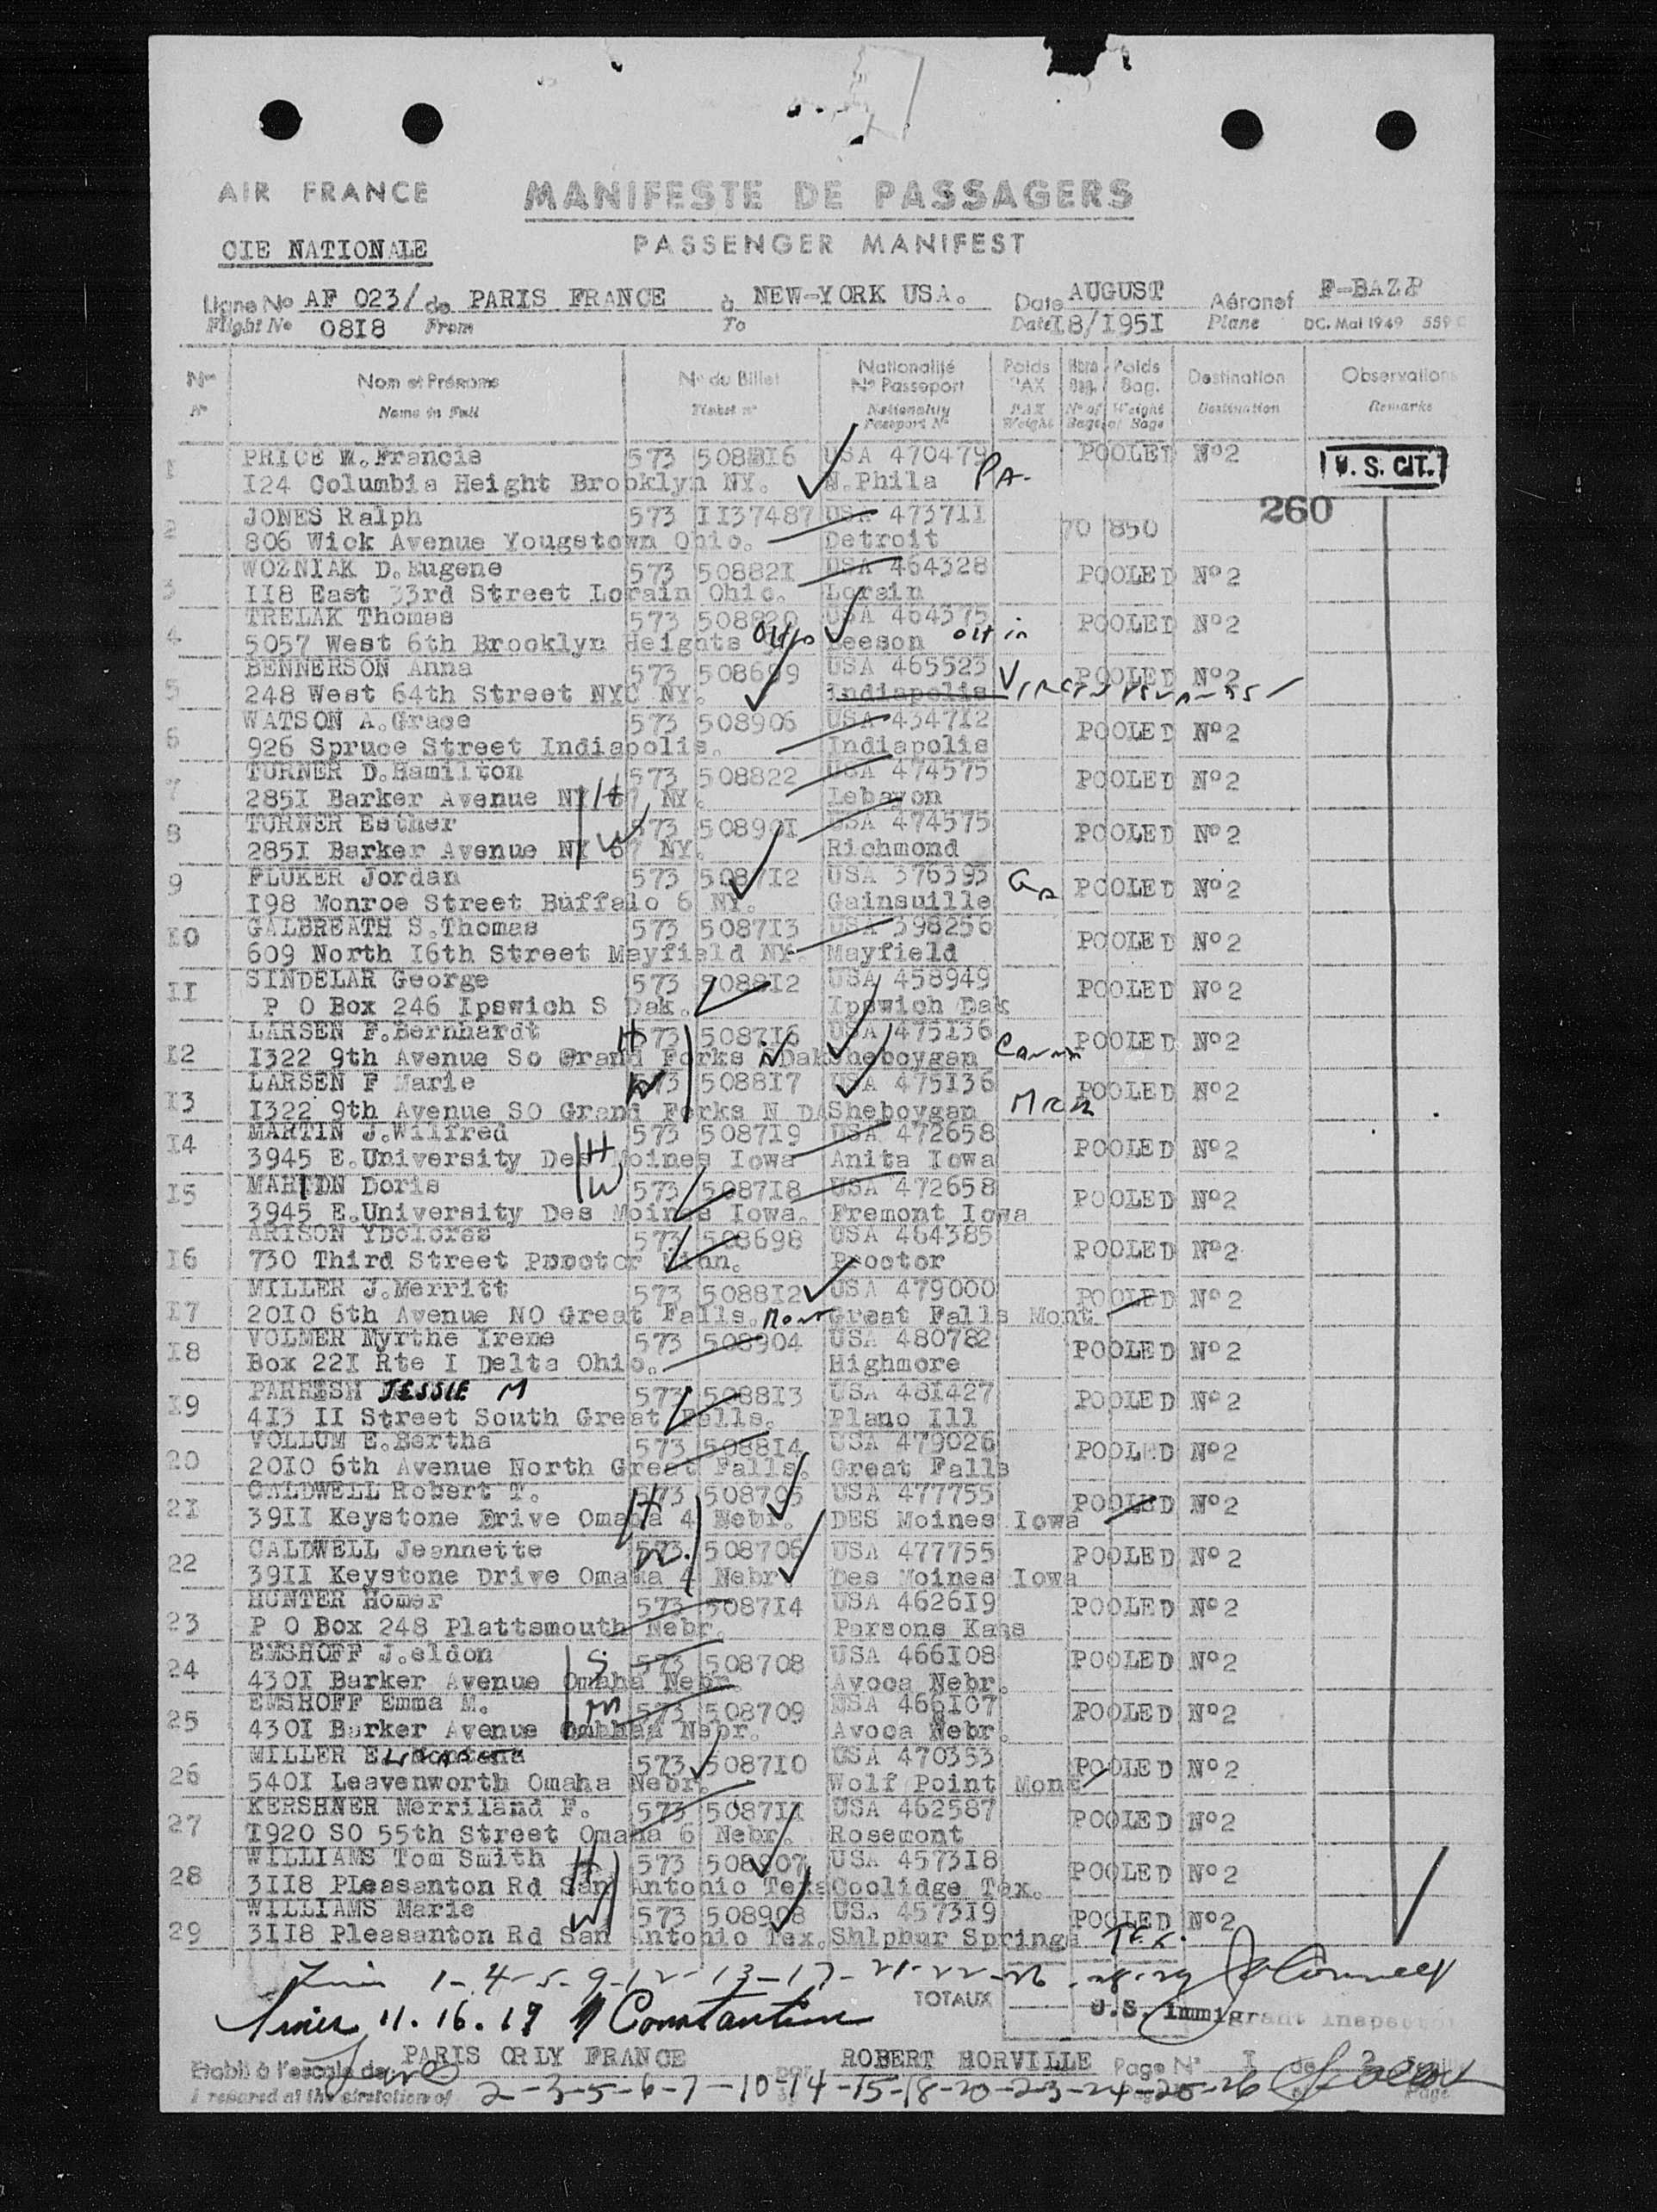 AIR FRANCE
MANIFESTE DE PASSAGERS
CIE NATIONALE
PASSENGER MANIFEST
Ligne No AF 023/ de PARIS FRANCE à NEW-YORK USA. Date AUGUST Aéronef F-BAZP
Flight No 08I8 From To Date I8/I95I Plane DC. Mai 1949 559
Nos Nom et Prénoms No du Billet Nationalité No Passeport Poids PAX Nbre Bag. Poids Bag. Destination Observations
No Name in Full Ticket no Nationality Passport No PAX Weight No of Bags Weight of Bags Destination Remarks
1 PRICE W.Francis 573 508816 USA 470479 POOLED No2 U. S. CIT.
I24 Columbia Height Brooklyn NY. N.Phila PA-
260
2 JONES Ralph 573 II37487 USA 4737II 70 850
806 Wick Avenue Yougstown Ohio. Detroit
3 WOZNIAK D.Eugene 573 50882I USA 464328 POOLED No2
II8 East 33rd Street Lorain Ohio. Lorain
4 TRELAK Thomas 573 508820 USA 464575 POOLED No2
5057 West 6th Brooklyn Heights Ohio Beeson
5 BENNERSON Anna 573 508699 USA 465523 POOLED No2
248 West 64th Street NYC NY. indiapolis
6 WATSON A.Grace 573 508906 USA 4347I2 POOLED No2
926 Spruce Street Indiapolis. Indiapolis
7 TURNER D.Hamilton 573 508822 USA 474575 POOLED No2
285I Barker Avenue NY 67 NY. H Lebanon
8 TURNER Esther 573 50890I USA 474575 POOLED No2
285I Barker Avenue NY 67 NY. W Richmond
9 FLUKER Jordan 573 5087I2 USA 376395 Ga POOLED No2
I98 Monroe Street Buffalo 6 NY. Gainsuille
I0 GALBREATH S.Thomas 573 5087I3 USA 398256 POOLED No2
609 North I6th Street Mayfield NY. Mayfield
II SINDELAR George 573 5088I2 USA 458949 POOLED No2
P O Box 246 Ipswich S Dak. Ipswich Dak
I2 LARSEN F.Bernhardt H 573 5087I6 USA 475I36 POOLED No2
I322 9th Avenue So Grand Forks N Dak Sheboygan
I3 LARSEN F Marie W 573 5088I7 USA 475I36 POOLED No2
I322 9th Avenue SO Grand Forks N DA Sheboygan Mich
I4 MARTIN J.Wilfred 573 5087I9 USA 472658 POOLED No2
3945 E.University Des Moines Iowa H Anita Iowa
I5 MARTIN Doris W 573 5087I8 USA 472658 POOLED No2
3945 E.University Des Moines Iowa. Fremont Iowa
I6 ARISON YDolores 573 508698 USA 464385 POOLED No2
730 Third Street Proctor Minn. Proctor
I7 MILLER J.Merritt 573 5088I2 USA 479000 POOLED No2
20I0 6th Avenue NO Great Falls. Mont Great Falls Mont.
I8 VOLMER Myrthe Irene 573 508904 USA 480782 POOLED No2
Box 22I Rte I Delta Ohio. Highmore
I9 PARRISH JESSIE M 573 5088I3 USA 48I427 POOLED No2
4I3 II Street South Great Falls. Plano Ill
20 VOLLUM E.Bertha 573 5088I4 USA 479026 POOLED No2
20I0 6th Avenue North Great Falls. Great Falls
2I CALDWELL Robert T. H 573 508705 USA 477755 POOLED No2
39II Keystone Drive Omaha 4 Nebr. DES Moines Iowa
22 CALDWELL Jeannette W. 573 508706 USA 477755 POOLED No2
39II Keystone Drive Omaha 4 Nebr Des Moines Iowa
23 HUNTER Homer 573 5087I4 USA 4626I9 POOLED No2
P O Box 248 Plattsmouth Nebr. Parsons Kans
24 EMSHOFF J.eldon S 573 508708 USA 466I08 POOLED No2
430I Barker Avenue Omaha Nebr. Avoca Nebr.
25 EMSHOFF Emma M. M 573 508709 USA 466I07 POOLED No2
430I Barker Avenue Omahaa Nebr. Avoca Nebr.
26 MILLER 573 5087I0 USA 470353 POOLED No2
540I Leavenworth Omaha Nebr. Wolf Point Mont
27 KERSHNER Merriland F. 573 5087II USA 462587 POOLED No2
I920 SO 55th Street Omaha 6 Nebr. Rosemont
28 WILLIAMS Tom Smith H 573 508907 USA 4573I8 POOLED No2
3II8 PLeasanton Rd San Antonio Texa Coolidge Tex.
29 WILLIAMS Marie W 573 508908 US. 4573I9 POOLED No2
3II8 Pleasanton Rd San Antonio Tex. Shlphur Springs TEX.
1-4-5-9-12-13-17-21-22-26-28-29
TOTAUX
U.S. Immigrant Inspector
11.16.19 Constantine
Etabli à l'escale de PARIS ORLY FRANCE par ROBERT HORVILLE Page No I de 3
Prepared at the airstation of by Page
2-3-5-6-7-10-14-15-18-20-23-24-25-26